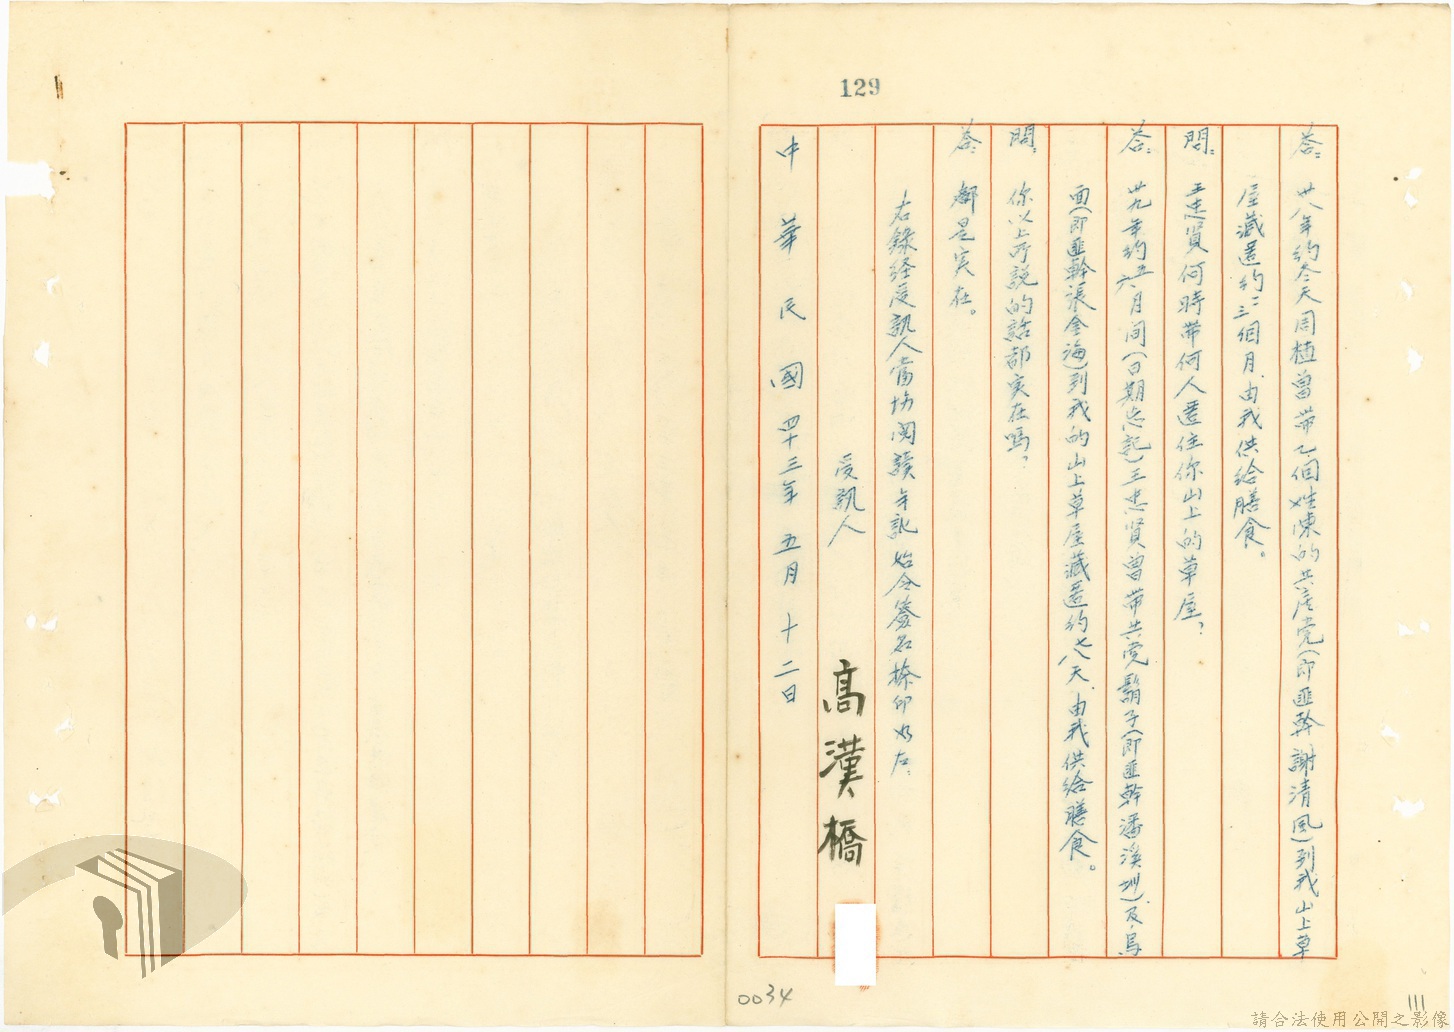 129
答：卅八年約冬天周植曾帶乙個姓陳的共產党（即匪幹謝清風）到我山上草
屋藏匿約二三個月、由我供給膳食。
問：王忠賢何時帶何人匿住你山上的草屋？
答：卅九年約五六月间（日期忘記）王忠賢曾帶共党鬍子（即匪幹潘溪圳）及烏
面（即匪幹張金海）到我的山上草屋藏匿約七八天、由我供給膳食。
問：你以上所說的話都实在嗎？
答：都是实在。
右錄経受訊人當場閱讀無訛始令簽名捺印如左、
受訊人
高漢橋
中華民國四十三年五月十二日
0034
111
請合法使用公開之影像